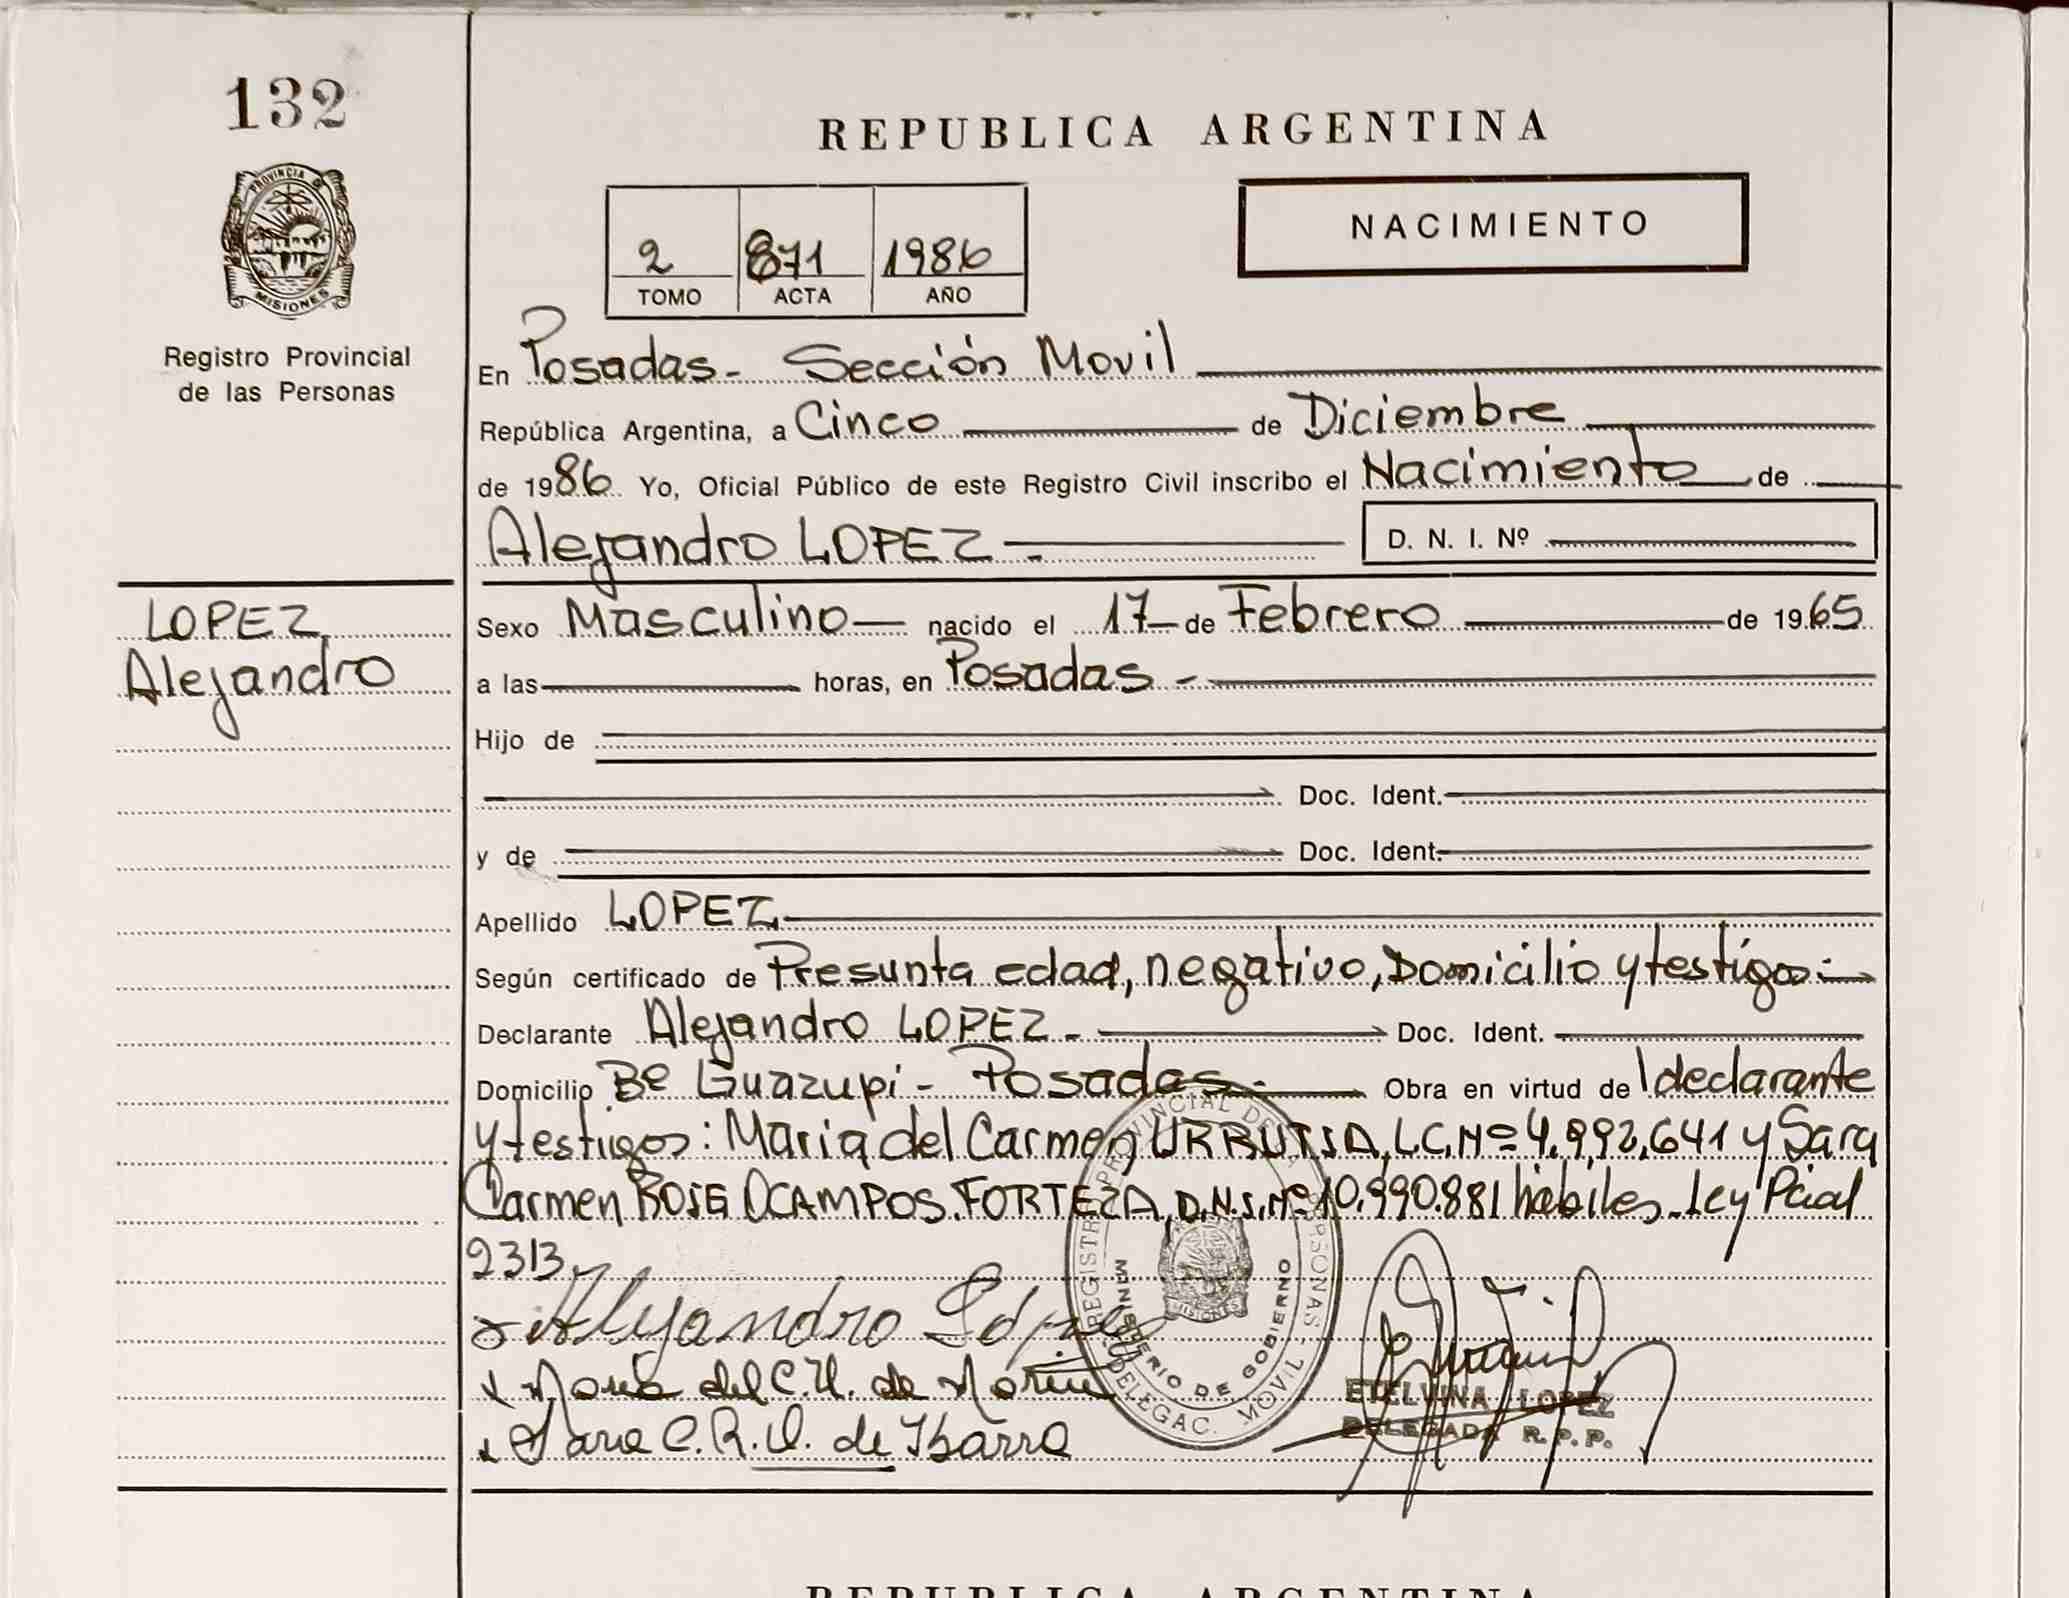 132
REPUBLICA ARGENTINA
PROVINCIA DE
MISIONES
NACIMIENTO
2 871 1986
TOMO ACTA AÑO
Registro Provincial
de las Personas
En Posadas - Sección Movil
República Argentina, a Cinco de Diciembre
de 1986 Yo, Oficial Público de este Registro Civil inscribo el Nacimiento de
Alejandro LOPEZ - D. N. I. Nº
LOPEZ,
Alejandro
Sexo Masculino nacido el 17 de Febrero de 1965
a las horas, en Posadas -
Hijo de
Doc. Ident.
y de Doc. Ident.
Apellido LOPEZ
Según certificado de Presunta edad, negativo, Domicilio y testigos -
Declarante Alejandro LOPEZ - Doc. Ident.
Domicilio Bº Guazupi - Posadas - Obra en virtud de declarante
y testigos: Maria del Carmen URRUTIA, L.C. Nº 4.992.641 y Sara
Carmen ROSE OCAMPOS FORTEZA, D.N.I. Nº 10.990.881 hábiles - Ley Pcial
2313
Alejandro López
María del C. U. de
Sara C. R. O. de Ibarra
REGISTRO PROVINCIAL DE LAS PERSONAS
MINISTERIO DE GOBIERNO
DELEGAC. MOVIL
MISIONES
ETELVINA LOPEZ
DELEGADA R. P. P.
REPUBLICA ARGENTINA